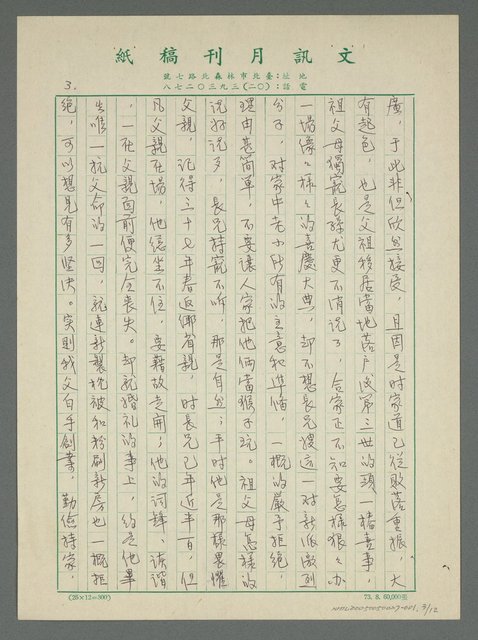 文訊月刊稿紙
地址:臺北市林森北路七號
電話:(○二)三九三○二七八
3.
廣,于此非但欣然接受,且因是时家道已從敗落重振,大
有起色,也是父祖移居當地落户後第三世的頭一樁喜事,
祖父母獨寵長孫尤更不消说了,合家正不知要怎樣狠狠办
一場像像樣樣的喜慶大典,却不想長兄嫂這一对新派激烈
分子,对家中老小所有的主意和準備,一概的嚴予拒絕,
理由甚简單,不要讓人家把他俩當猴子玩。祖父母怎樣的
说好说歹,長兄持寵不听,那是自然;平时他是那樣畏懼
父親,记得三十七年春返鄉省親,时長兄已年近半百,但
凡父親在場,他總坐不住,要藉故走開;他的词鋒、诙谐
,一在父親面前便完全丧失。却就婚礼的事上,约是他畢
生唯一抗父命的一回,就連新製枕被和粉刷新房也一概拒
絕,可以想見有多坚决。实则我父白手創業,勤儉持家,
(25×12=300)
73. 8. 60,000張
3/12